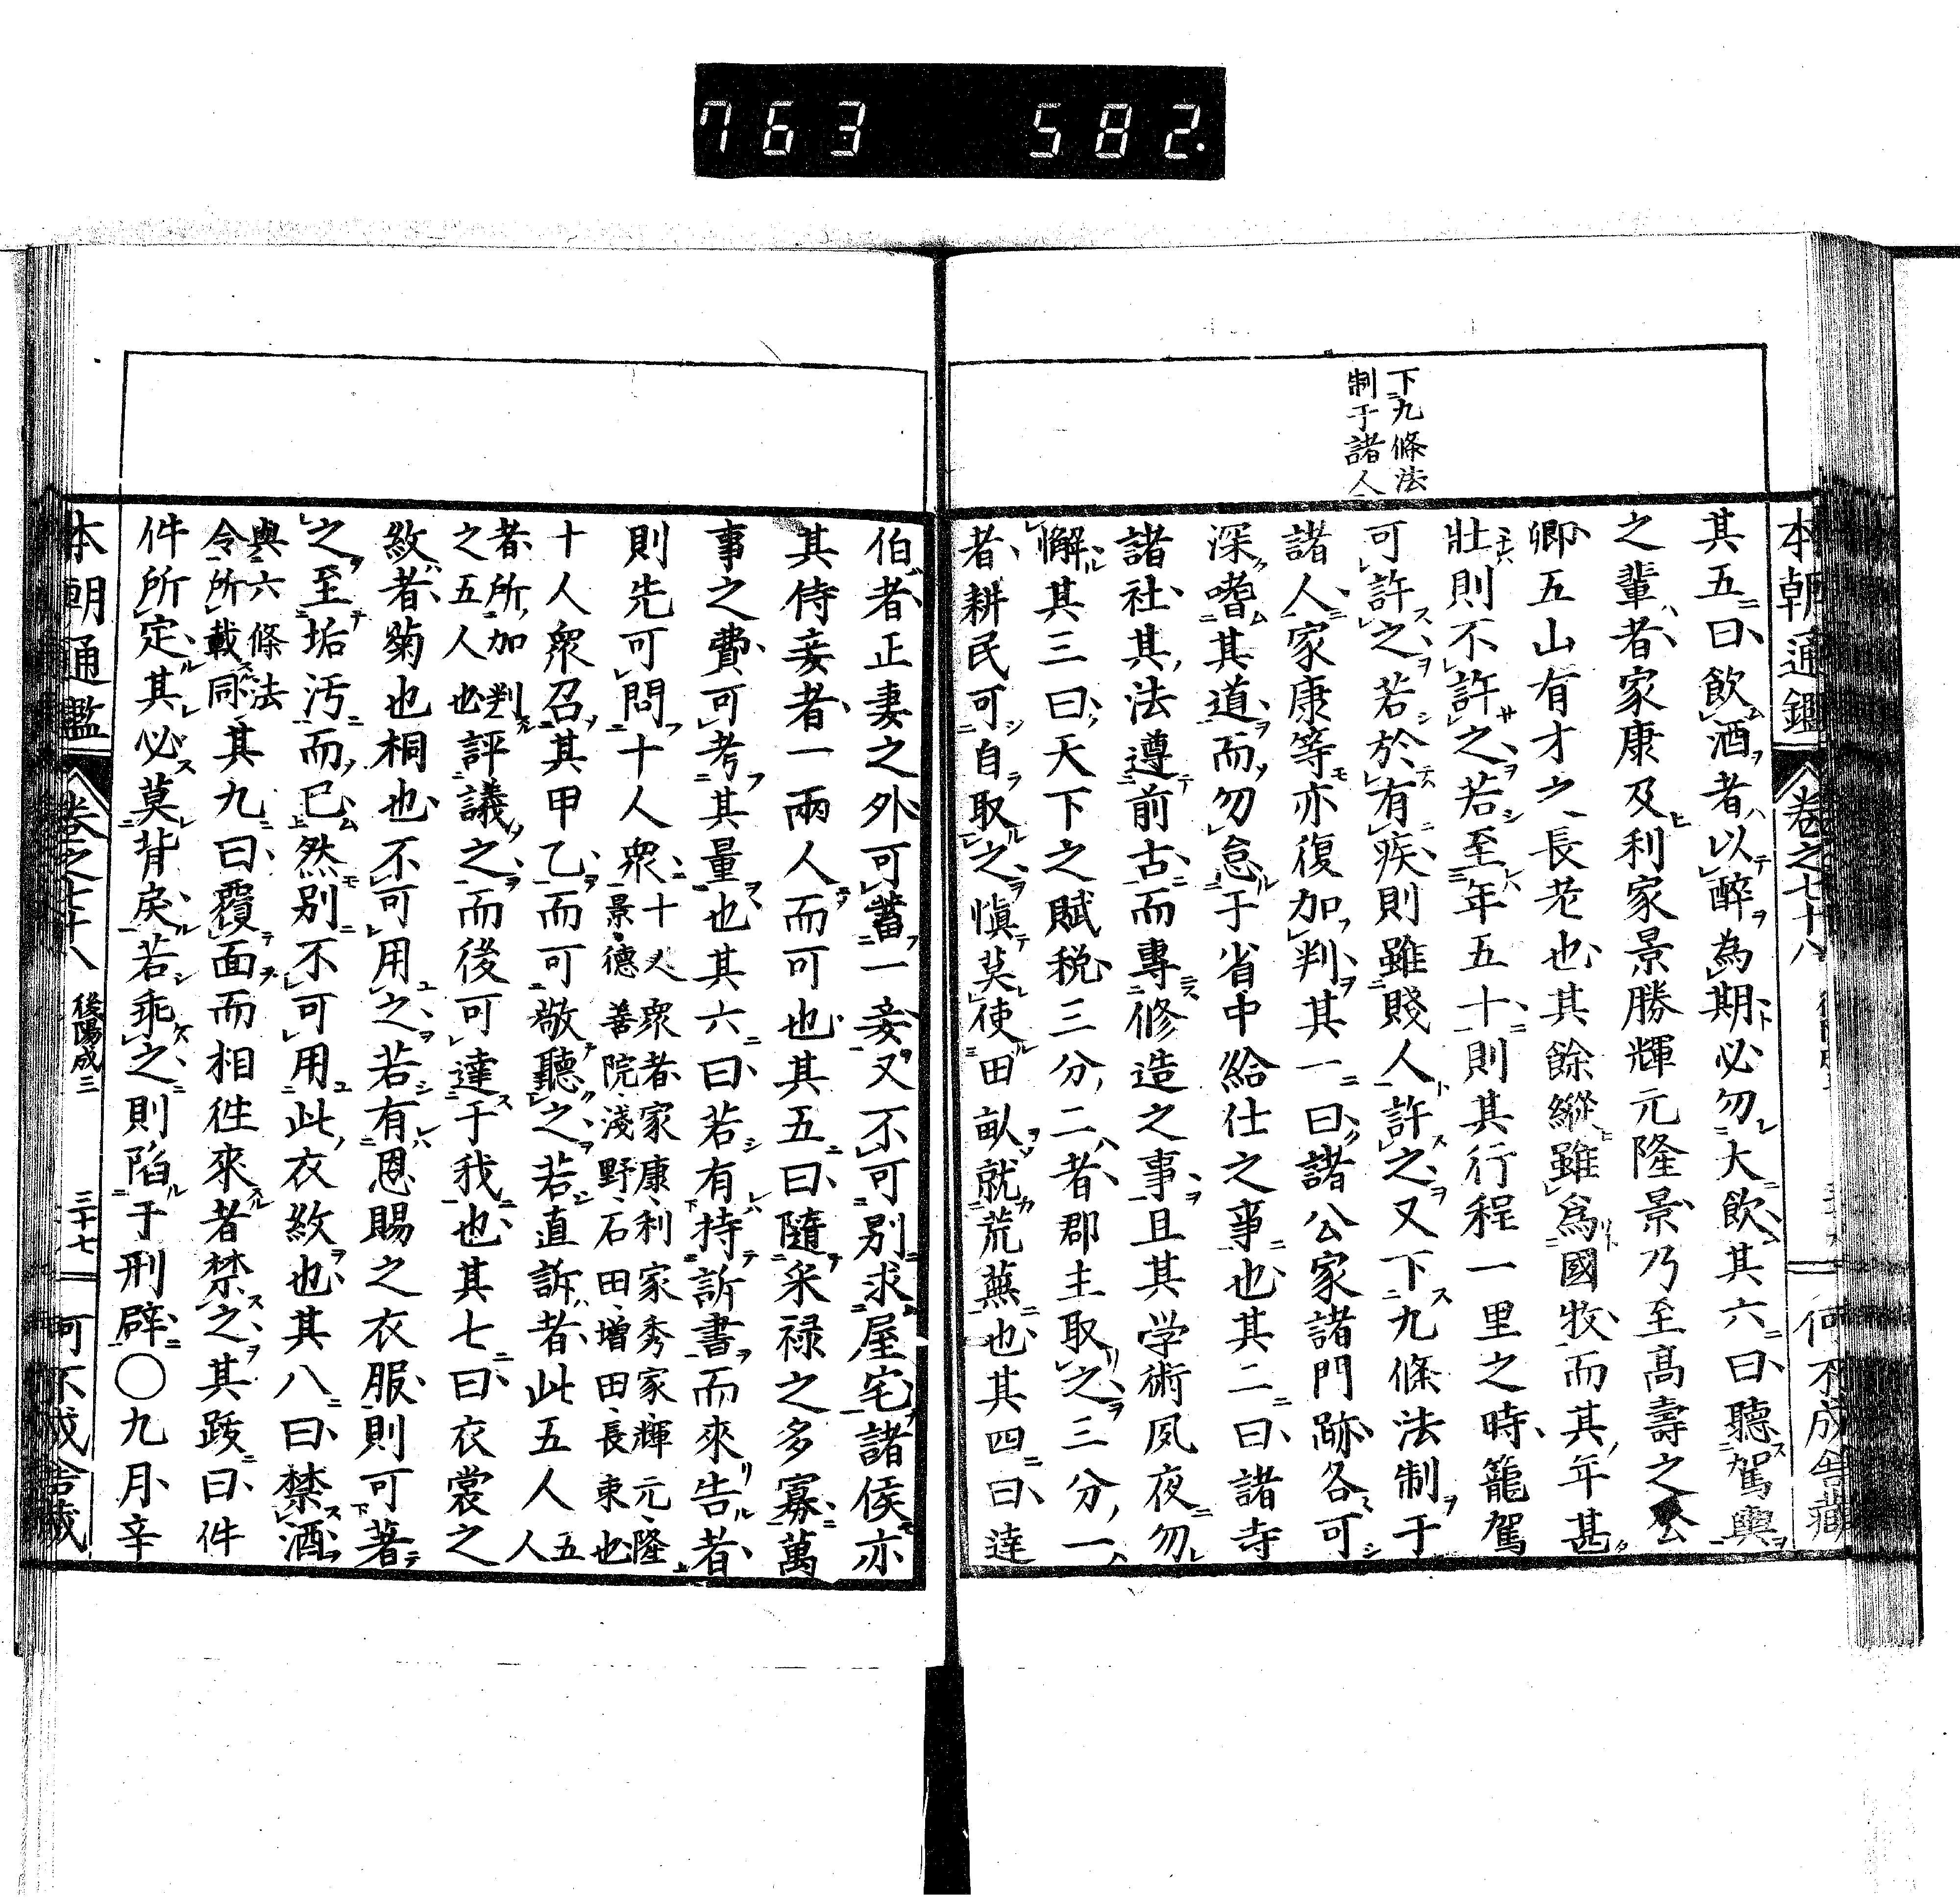 763 582.
下九條法
制于諸人
本朝通鑑 卷之七十八 何不成舍藏
其五曰飲酒者以醉為期必勿大飲其六曰聽駕輿
之輩者家康及利家景勝輝元隆景乃至高壽之公
卿五山有才之長老也其餘縱雖為國牧而其年甚
壯則不許之若至年五十則其行程一里之時籠駕
可許之若於有疾則雖賤人許之又下九條法制于
諸人家康等亦復加判其一曰諸公家諸門跡各可
深嗜其道而勿怠于省中給仕之事也其二曰諸寺
諸社其法遵前古而專修造之事且其学術夙夜勿
懈其三曰天下之賦税三分二者郡主取之三分一
者耕民可自取之慎莫使田畝就荒蕪也其四曰達
伯者正妻之外可蓄一妾又不可別求屋宅諸侯亦
其侍妾者一兩人而可也其五曰隨采禄之多寡萬
事之費可考其量也其六曰若有持訴書而來告者
則先可問十人衆十人衆者家康利家秀家輝元隆景德善院淺野石田増田長束也
十人衆召其甲乙而可敬聽之若直訴者此五人五人
者所加判之五人也評議之而後可達于我也其七曰衣裳之
紋者菊也桐也不可用之若有恩賜之衣服則可著
之至垢汚而已然別不可用此衣紋也其八曰禁酒
與六條法令所載同其九曰覆面而相徃來者禁之其跋曰件
件所定其必莫背戾若乖之則陷于刑辟〇九月辛
本朝通鑑 卷之七十八 後陽成三 三十七 何不成舍藏